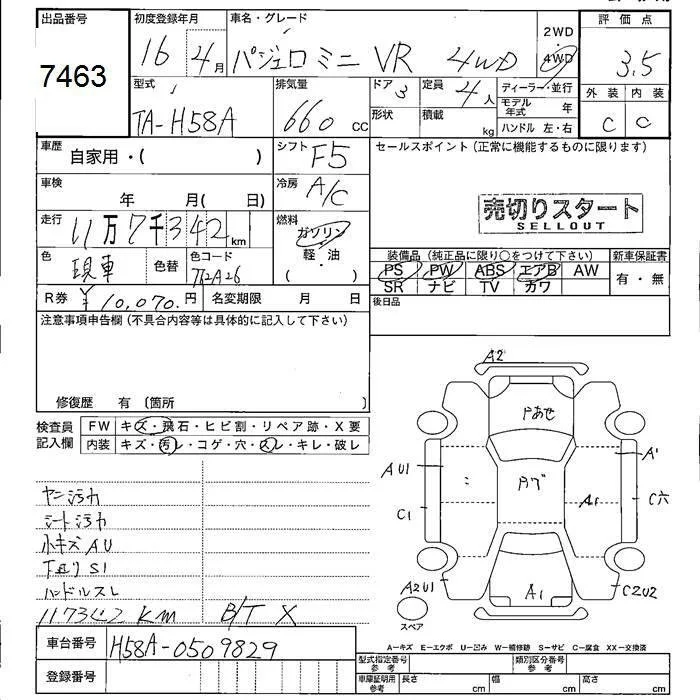 出品番号
7463
初度登録年月
16 4月
車名・グレード
パジェロミニ VR 4WD
2WD
4WD
評価点
3.5
外装 内装
C C
型式
TA-H58A
排気量
660 CC
ドア 3
形状
定員 4人
積載 kg
ディーラー・並行
モデル年式 年
ハンドル 左・右
車歴
自家用・( )
シフト F5
セールスポイント(正常に機能するものに限ります)
売切りスタート
SELLOUT
車検
年 月( 日)
冷房 A/C
走行
11万7千342km
燃料
ガソリン
軽・油
( )
色
現車
色替
色コード
装備品(純正品に限り○をつけて下さい)
PS PW ABS エアB AW
SR ナビ TV カワ
新車保証書
有・無
R券 ¥10,070.円
名変期限 月 日
後日品
注意事項申告欄(不具合内容等は具体的に記入して下さい)
修復歴 有 〔箇所 〕
検査員
記入欄
FW キズ・飛石・ヒビ割・リペア跡・X要
内装 キズ・汚レ・コゲ・穴・スレ・キレ・破レ
ヤニ汚れ
シート汚れ
小キズ AU
下廻り S1
ハンドルスレ
117342 KM B/T X
A2
Pあせ
AU1
A'
C1
A1
C穴
A2U1
A1
C2U2
スペア
A-キズ E-エクボ U-凹み W-補修跡 S-サビ C-腐食 XX-交換済
車台番号
H58A-0509829
登録番号
型式指定番号
参考
類別区分番号
参考
車庫証明用
参考
長さ cm
幅 cm
高さ cm